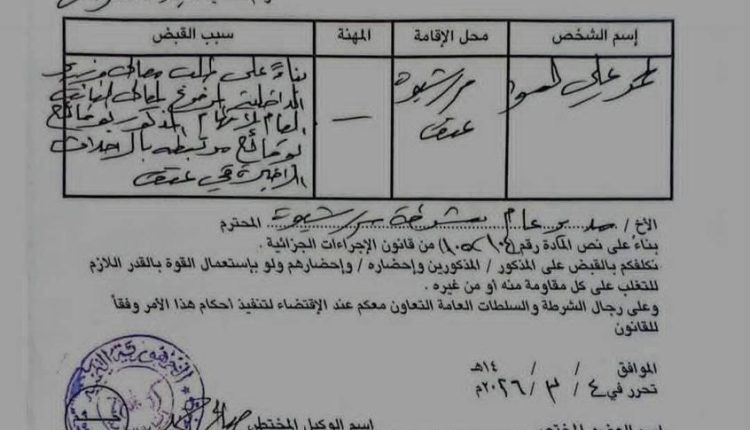 إسم الشخص
محل الإقامة
المهنة
سبب القبض
علي
م/شبوة
عتق
—
بناءً على طلب معالي وزير
الداخلية المرفوع لمعالي النائب
العام المذكور بوقائع
مرتبطة بالأحداث
الأخيرة في عتق
الأخ / مدير عام شرطة م/شبوة المحترم
بناءً على نص المادة رقم (١٠٤) من قانون الإجراءات الجزائية .
نكلفكم بالقبض على المذكور / المذكورين وإحضاره / وإحضارهم ولو بإستعمال القوة بالقدر اللازم
للتغلب على كل مقاومة منه او من غيره .
وعلى رجال الشرطة والسلطات العامة التعاون معكم عند الإقتضاء لتنفيذ أحكام هذا الأمر وفقاً
للقانون
الموافق / / ١٤هـ
تحرر في ٤ / ٣ / ٢٠٢٦م
اسم الوكيل المختص